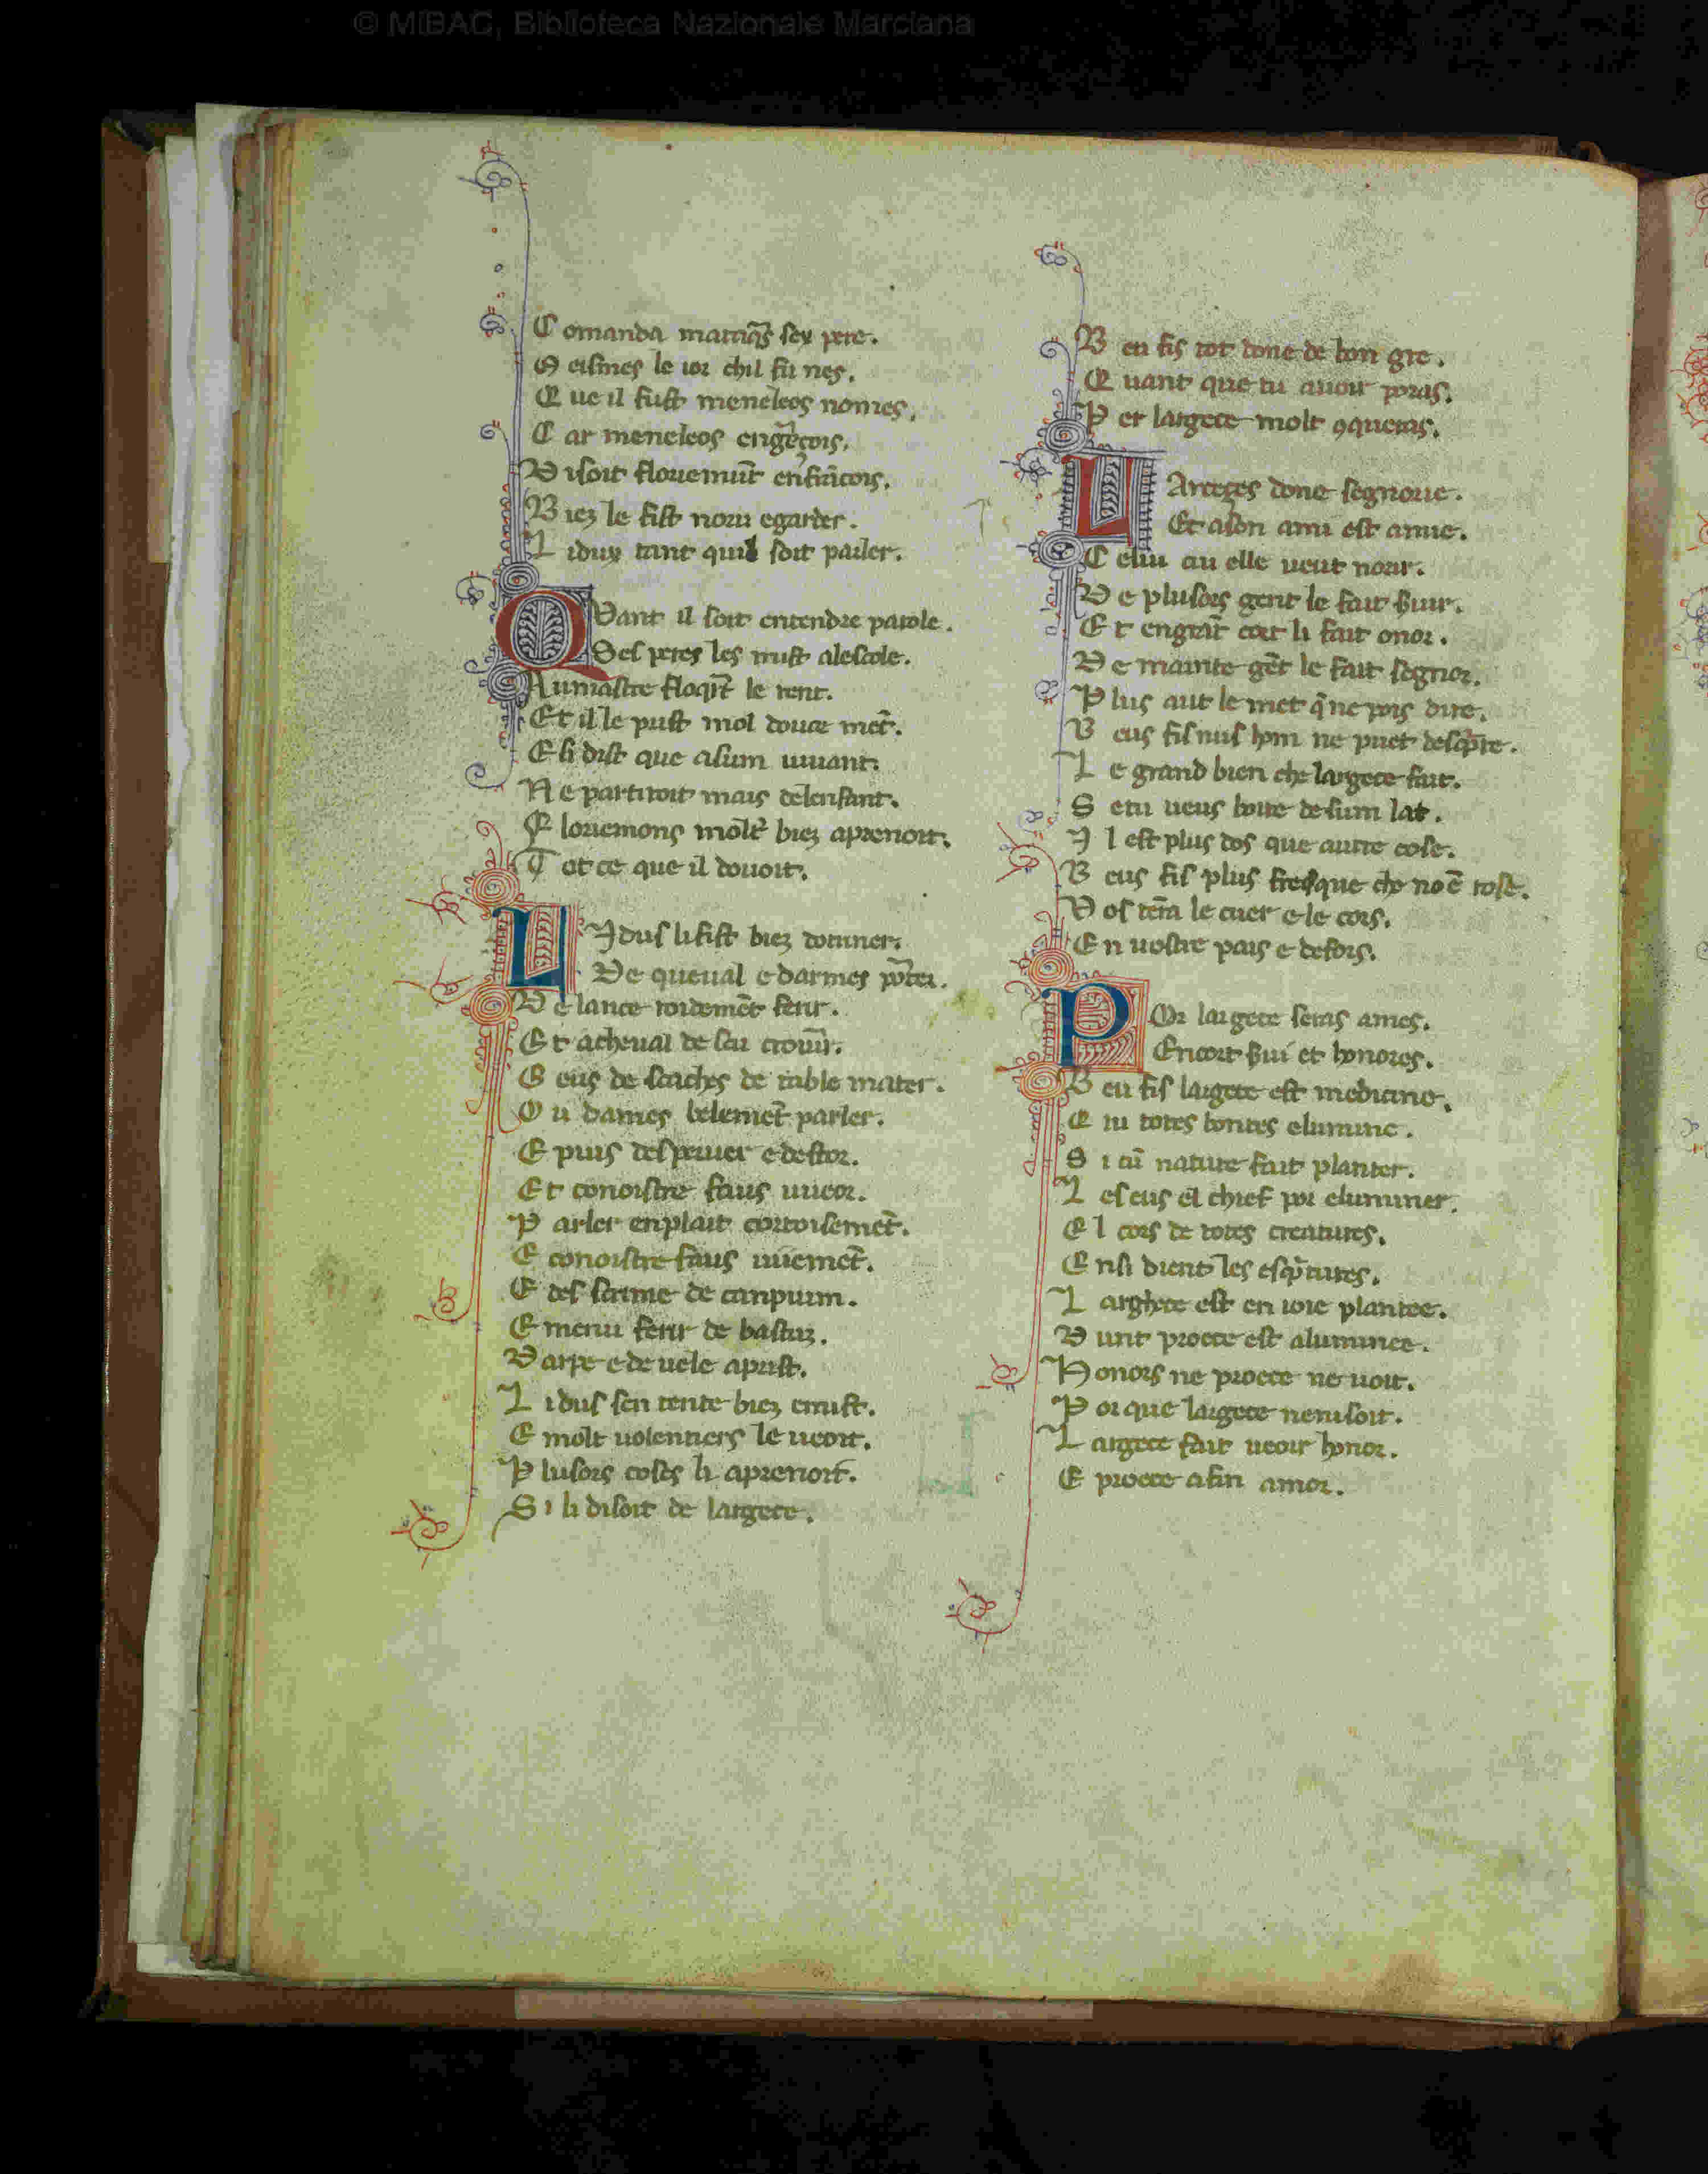 © MiBAC, Biblioteca Nazionale Marciana
C omanda
M eismes le ior chil fu nes.
Q ue il fust meneleos nomes.
C ar meneleos
D isoit floriemūt
B iez le fist noru egarder.
L idux tant quil soit parler.
QVant il soit entendre parole.
Ses peres les mist alescole.
A umastre le rent.
Et il le prist mol douce mēt.
E li dist que asum uiuant.
N e partiroit mais delenfant.
F loriemons molt biez aprenoit.
T ot ce que il douoit.
LIdus lifist biez
De queual e darmes
D e lance roidemēt ferir.
E t acheual de
G eus de scaches de table mater.
O u dames belemēt parler.
E puis desperuer e dostor.
E t conoistre faus iuieor.
P arler enplait cortoisemēt.
E conoistre faus
E des scrime de canpium.
E menu ferir de bastuz.
D arpe e de uiele aprist.
L idus sen tente biez emist.
E molt uolentiers le ueoit.
P lusors coses li aprenoit.
S i li disoit de largece.
B eu fis tot done de bon gre.
Q uant que tu auoir poras.
P er largece molt ꝯqueras.
LArgeçes done segnorie.
Et ason ami est amie.
C elui cui elle ueut norir.
D e plusors gent le fait
E t engrāt cort li fait onor.
D e mainte gēt le fait segnor.
P lus aut le met q̄ ne pois dire.
B eus fis nus hom ne puet
L e grand bien che largece fait.
S e tu ueus boire de sum lat.
I l est plus dos que autre cose.
B eus fis plus fresque che no ē rose.
V os tēra le cuer e le cors.
E n uostre pais e defors.
POr largece seras ames.
Encort et honores.
B eu fis largece est medicine.
E in totes bontes elumine.
S i cū nature fait planter.
L es eus el chief por eluminer.
E l cors de totes creatures.
E nsi dient les
L arghece est en ioie plantee.
D unt proece est aluminee.
H onors ne proece ne uoit.
P or que largece nemisoit.
L argece fait ueoir honor.
E proece afin amor.